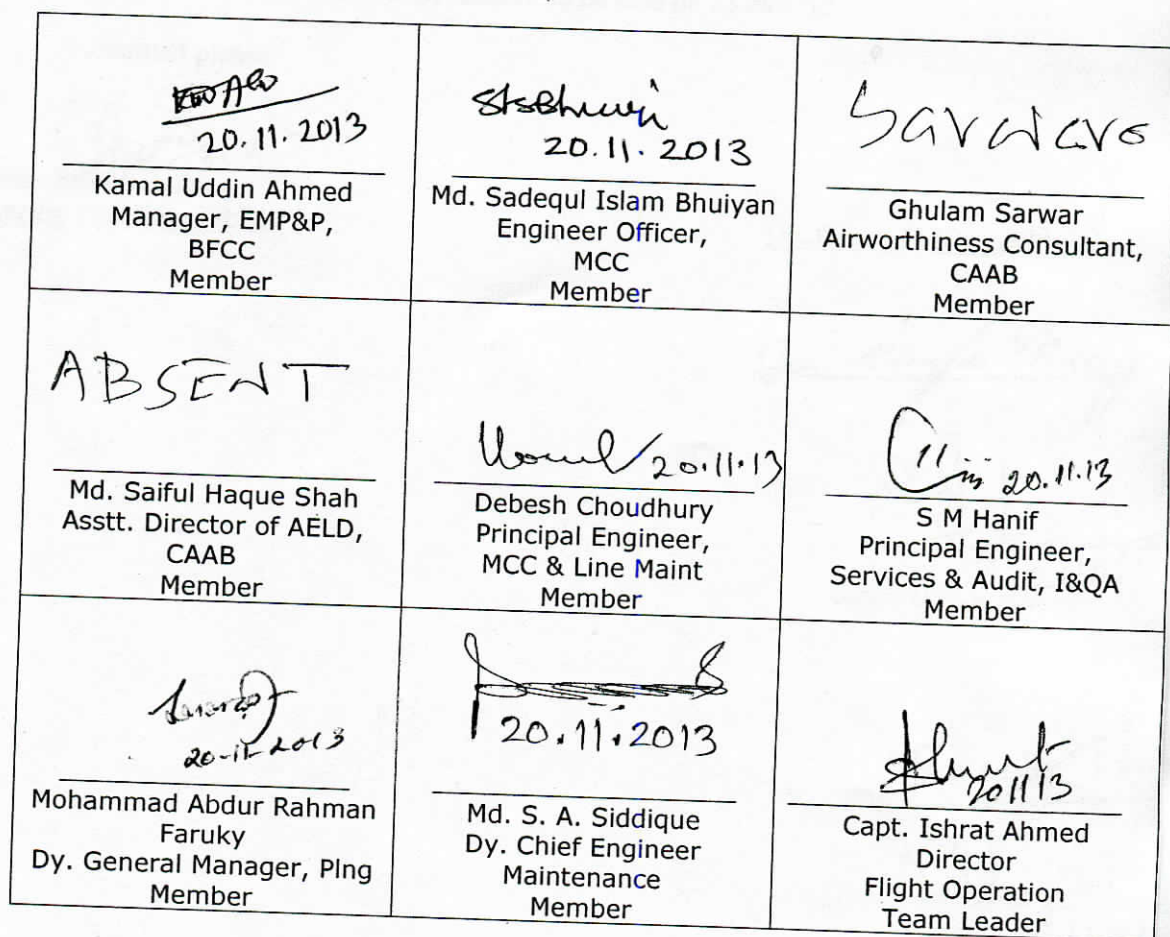 20.11.2013
Kamal Uddin Ahmed
Manager, EMP&P,
BFCC
Member
SIsBhuiya
20.11.2013
Md. Sadequl Islam Bhuiyan
Engineer Officer,
MCC
Member
Sarwar
Ghulam Sarwar
Airworthiness Consultant,
CAAB
Member
ABSENT
Md. Saiful Haque Shah
Asstt. Director of AELD,
CAAB
Member
20.11.13
Debesh Choudhury
Principal Engineer,
MCC & Line Maint
Member
20.11.13
S M Hanif
Principal Engineer,
Services & Audit, I&QA
Member
20-11-2013
Mohammad Abdur Rahman
Faruky
Dy. General Manager, Plng
Member
20.11.2013
Md. S. A. Siddique
Dy. Chief Engineer
Maintenance
Member
201113
Capt. Ishrat Ahmed
Director
Flight Operation
Team Leader